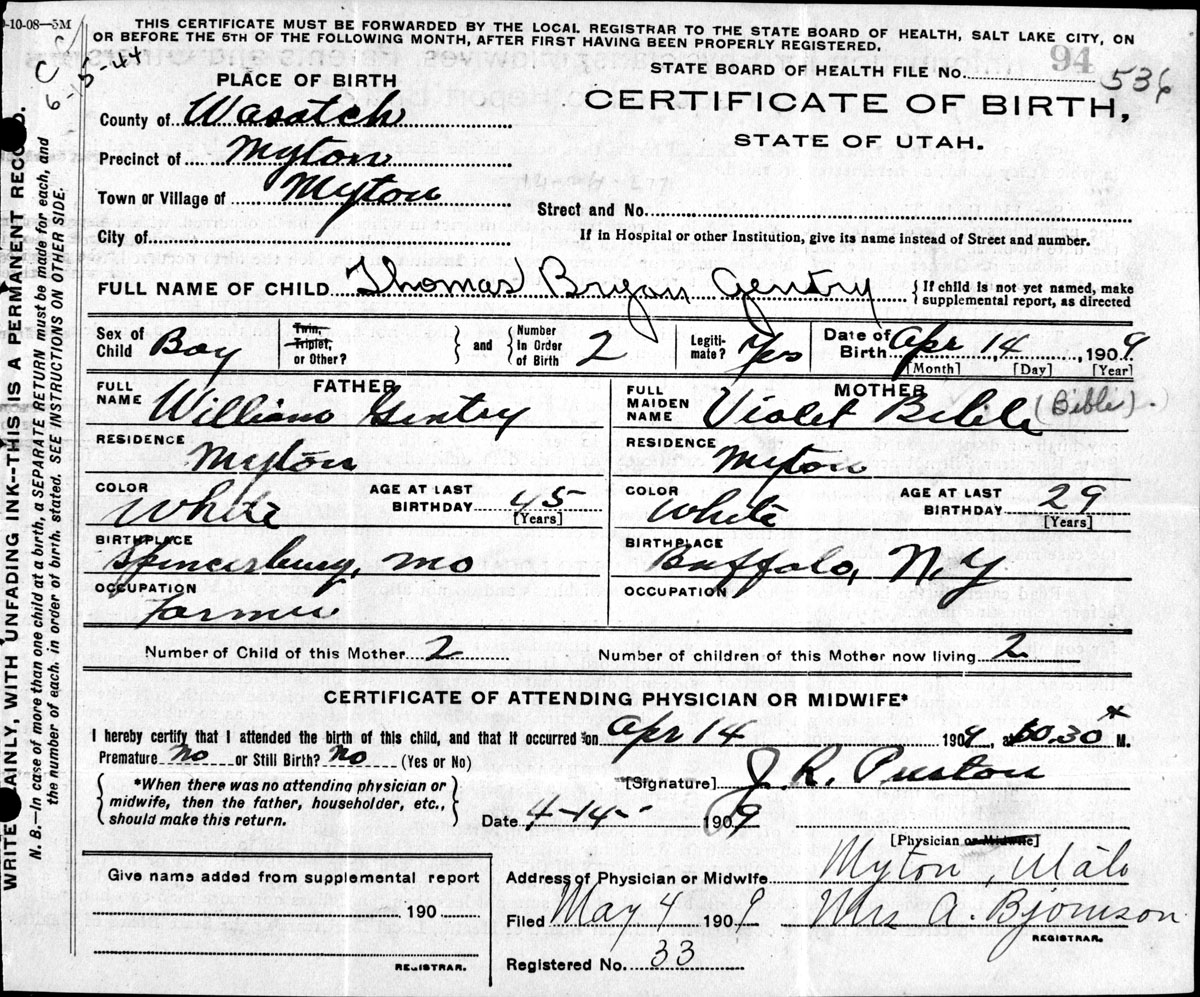 9-10-08—5M
THIS CERTIFICATE MUST BE FORWARDED BY THE LOCAL REGISTRAR TO THE STATE BOARD OF HEALTH, SALT LAKE CITY, ON
OR BEFORE THE 5TH OF THE FOLLOWING MONTH, AFTER FIRST HAVING BEEN PROPERLY REGISTERED.
C C
6-15-44
PLACE OF BIRTH
STATE BOARD OF HEALTH FILE No. 94 536
CERTIFICATE OF BIRTH,
STATE OF UTAH.
County of Wasatch
Precinct of Myton
Town or Village of Myton
Street and No.
City of
If in Hospital or other Institution, give its name instead of Street and number.
FULL NAME OF CHILD Thomas Bryan Gentry { If child is not yet named, make supplemental report, as directed
Sex of Child Boy
Twin, Triplet, or Other? } and { Number In Order of Birth 2
Legiti-mate? Yes
Date of Birth Apr 14, 1909
[Month] [Day] [Year]
FATHER
FULL NAME William Gentry
RESIDENCE
Myton
COLOR White
AGE AT LAST BIRTHDAY 45
[Years]
BIRTHPLACE
Spencerburg, Mo
OCCUPATION
Farmer
MOTHER
FULL MAIDEN NAME Violet Bible (Bible).)
RESIDENCE
Myton
COLOR White
AGE AT LAST BIRTHDAY 29
[Years]
BIRTHPLACE
Buffalo, N.Y
OCCUPATION
Number of Child of this Mother 2
Number of children of this Mother now living 2
CERTIFICATE OF ATTENDING PHYSICIAN OR MIDWIFE*
I hereby certify that I attended the birth of this child, and that it occurred on Apr 14 1909, at 10.30 M.
Premature No or Still Birth? No (Yes or No)
{ *When there was no attending physician or midwife, then the father, householder, etc., should make this return. }
[Signature] J. R.
Date 4-14- 1909
[Physician or Midwife]
Give name added from supplemental report
190
REGISTRAR.
Address of Physician or Midwife Myton, Utah
Filed May 4 1909 Mrs A. Bjornson
REGISTRAR.
Registered No. 33
WRITE PLAINLY, WITH UNFADING INK--THIS IS A PERMANENT RECORD.
N. B.—In case of more than one child at a birth, a SEPARATE RETURN must be made for each, and
the number of each, in order of birth, stated. SEE INSTRUCTIONS ON OTHER SIDE.